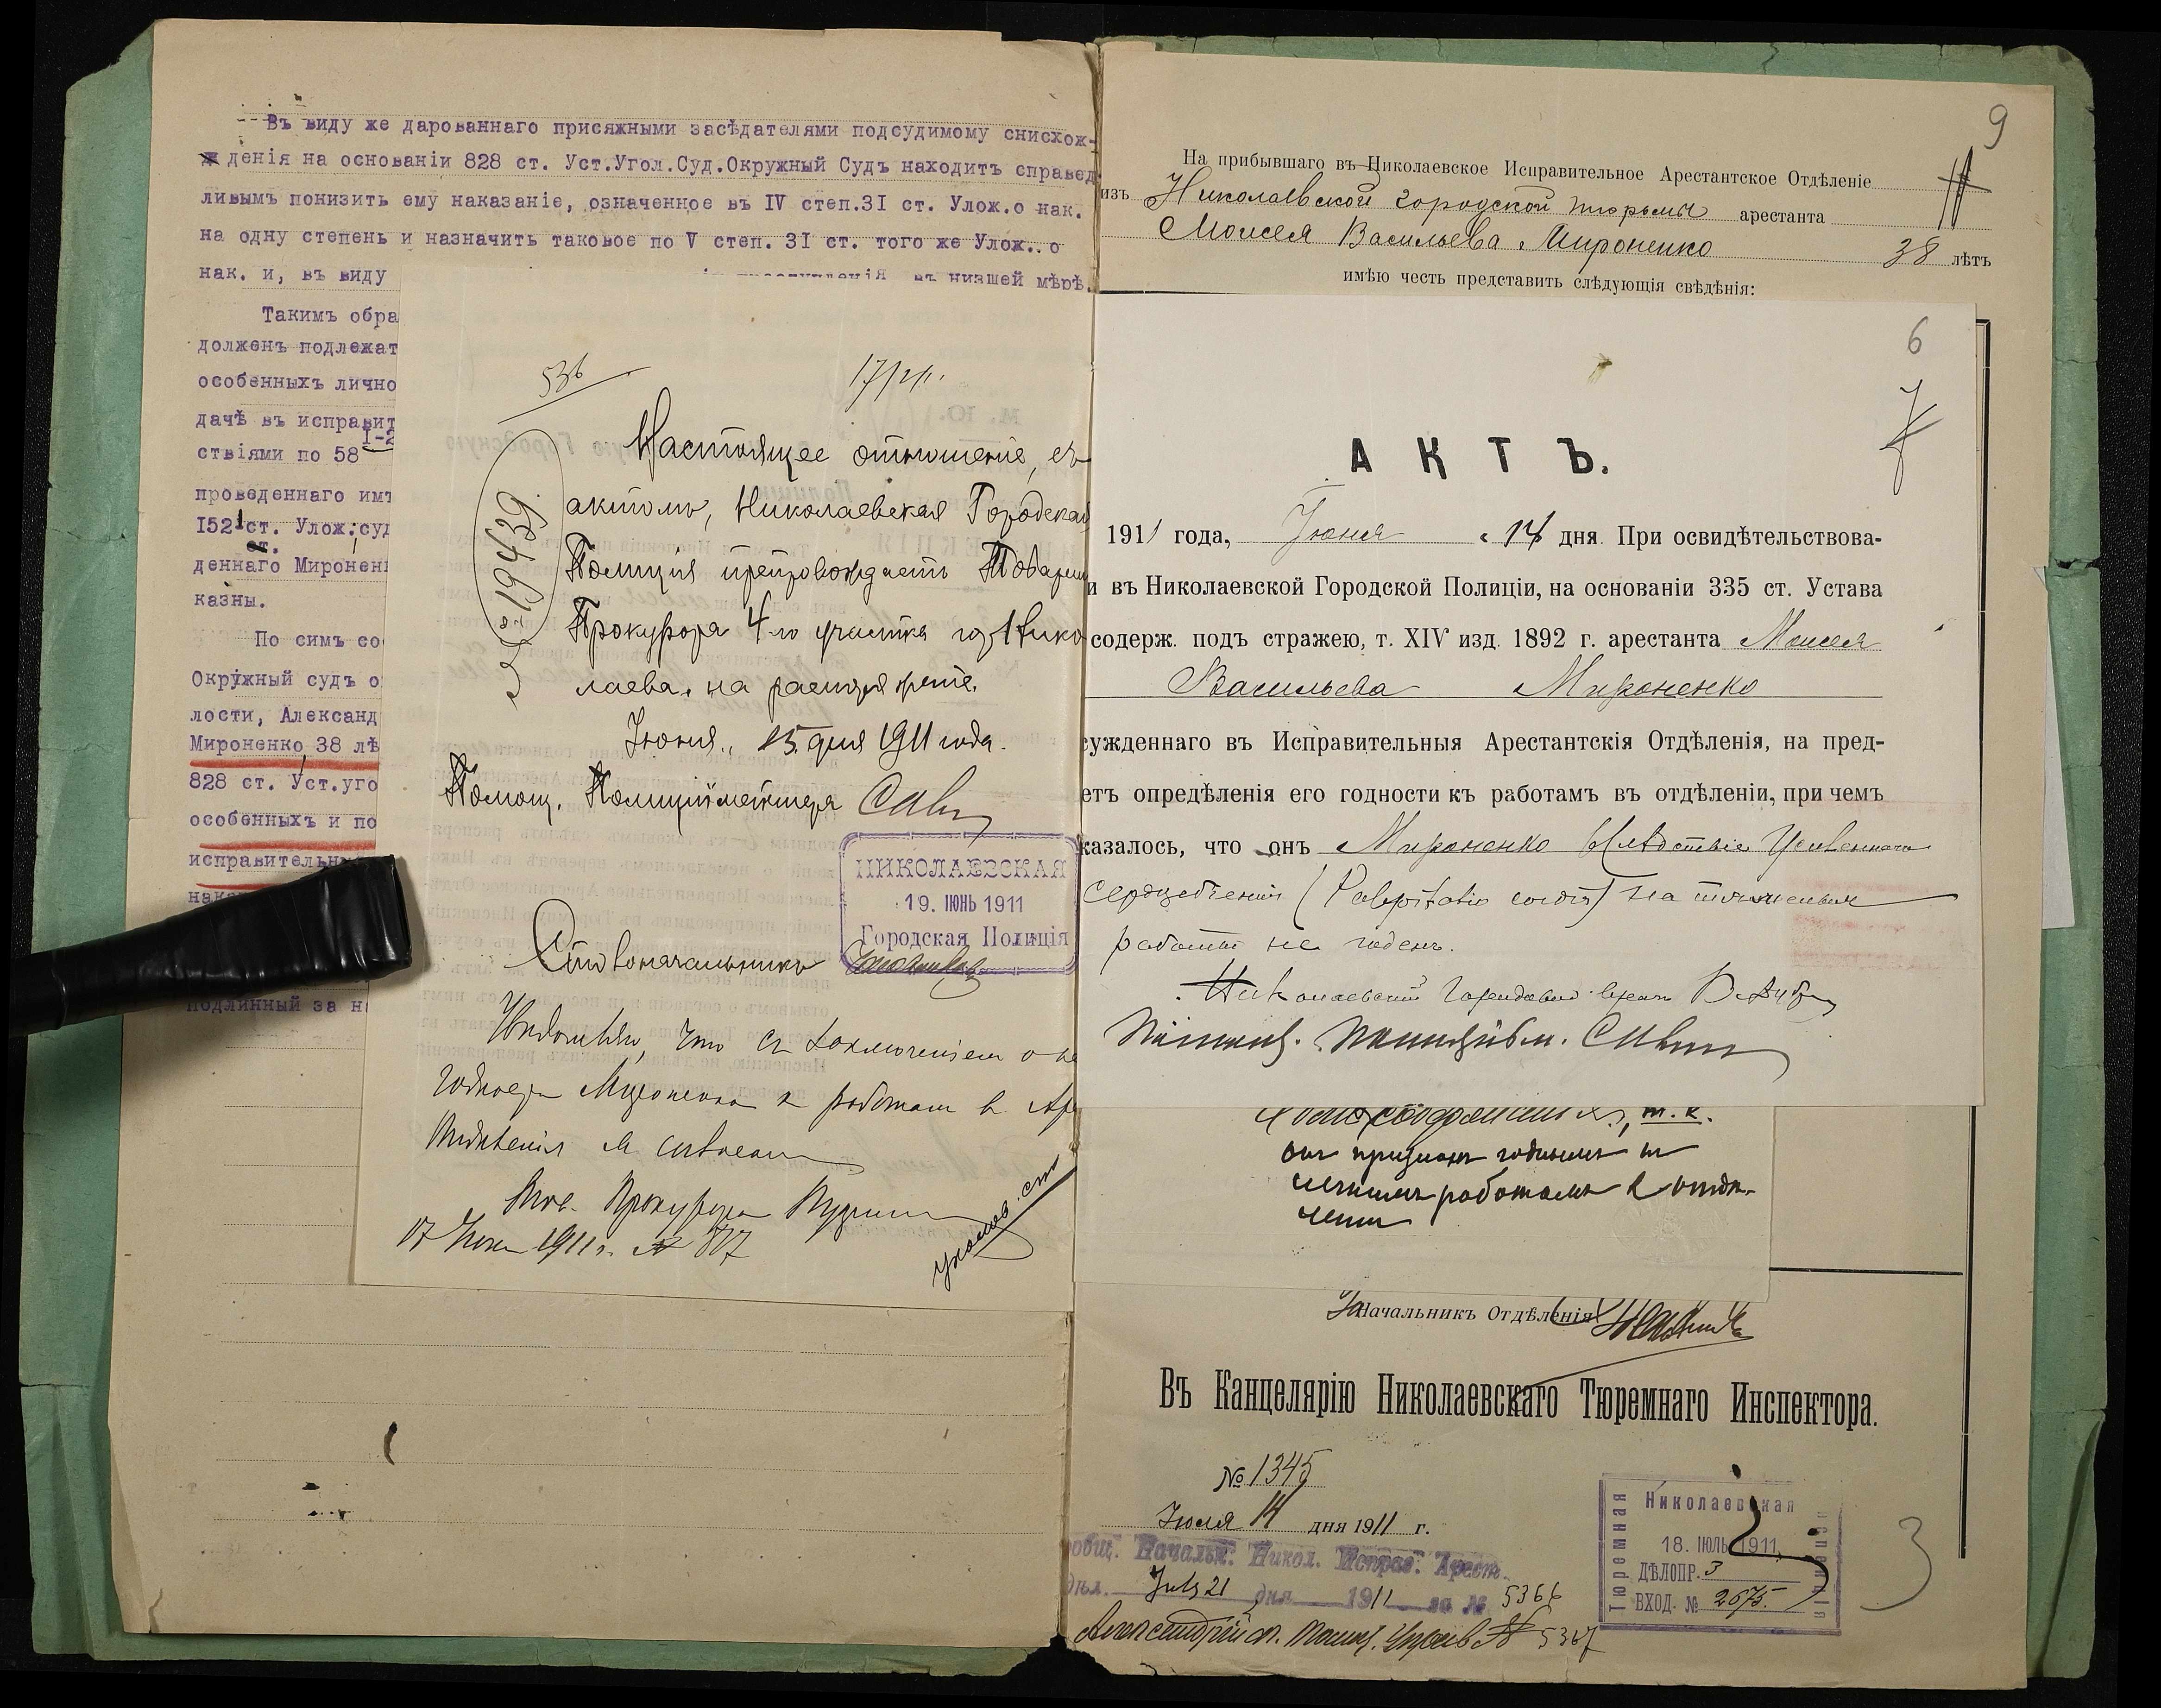 Въ виду же дарованнаго присяжными засѣдателями подсудимому снисхож-
денія на основаніи 828 ст. Уст.Угол.Суд.Окружный Судъ находитъ справед
ливымъ понизить ему наказаніе, означенное въ IV степ.31 ст. Улож.о нак.
на одну степень и назначить таковое по V степ. 31 ст. того же Улож..о
нак. и, въ виду
въ низшей мѣрѣ.
Такимъ обра
долженъ подлежат
особенныхъ лично
дачѣ въ исправит
ствіями по 58 I-2
проведеннаго имъ
152 1 ст. Улож.суд
ст.
деннаго Миронен
казны.
По симъ со
Окружный судъ о
лости, Александ
Мироненко, 38 лѣ
828 ст. Уст.уго
особенныхъ и по
исправительн
нак
Подлинный за н
536
17/
№ 19439
Настоящее отношеніе, съ
актомъ, Николаевская Городская
Полиція препровождаетъ Товарищ
Прокурора 4-го участка гор. Нико
лаева, на распоряженіе.
Іюня, 15 дня 1911 года.
Помощ. Полиціймейстера
НИКОЛАЕВСКАЯ
19. ІЮНЬ 1911
Городская Полиція
Уведомляю, что съ заключеніем о не
годности Мироненко к работам в Аре
отделенія
Тов. Прокурора
17 Іюня 1911 г. № 807
9
На прибывшаго въ Николаевское Исправительное Арестантское Отдѣленіе
изъ Николаевской городской тюрьмы арестанта
Моисея Васильева Мироненко 38 лѣтъ
имѣю честь представить слѣдующія свѣдѣнія:
6
7
АКТЪ.
1911 года, Іюня 14 дня. При освидѣтельствова-
и въ Николаевской Городской Полиціи, на основаніи 335 ст. Устава
содерж. подъ стражею, т. XIV изд. 1892 г. арестанта Моисея
Васильева Мироненко
сужденнаго въ Исправительныя Арестантскія Отдѣленія, на пред-
етъ опредѣленія его годности къ работамъ въ отдѣленіи, при чемъ
казалось, что онъ Мироненко вслѣдствіе Усиленнаго
сердцебіенія (Palpitatio cordis) на тяжелыя
работы не годенъ.
Николаевскій Городовой врачъ
Помощ. Полиційм.
т. к.
он признан годным к
легким работам в отдѣ-
леніи
За Начальникъ Отдѣленія
Въ Канцелярію Николаевскаго Тюремнаго Инспектора.
№ 1345
Іюля 14 дня 1911 г.
ообщ. Начальн. Никол. Исправ. Арест.
дѣл. July 21 дня 1911 за № 5366
№ 5367
Николаевская
Тюремная
18. ІЮЛЬ 1911
ДѢЛОПР. 3
ВХОД. № 2675.
3